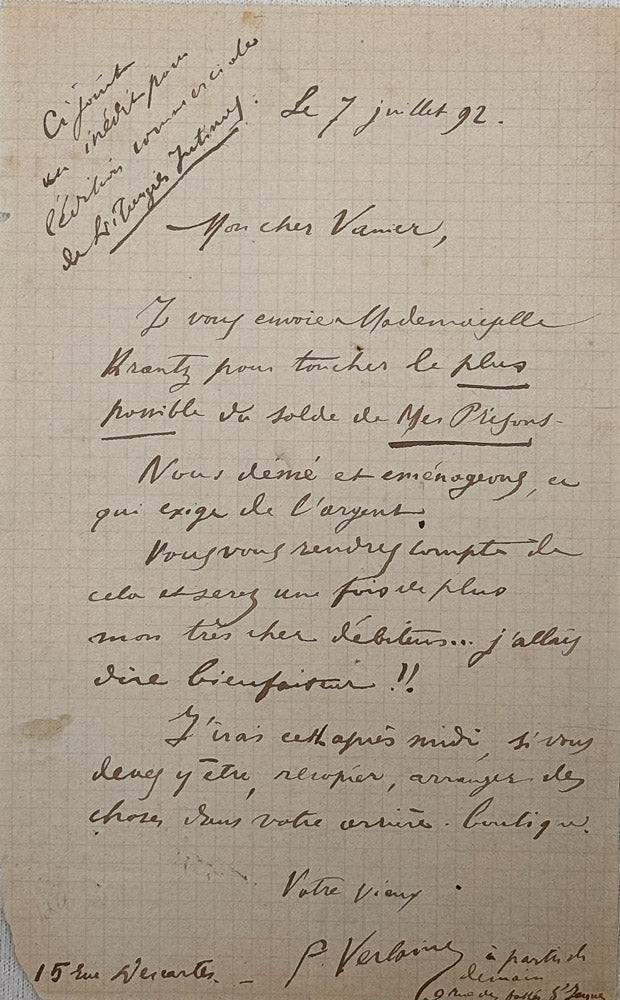 Ci joint
un inédit pour
l'édition commerciale
de Liturgies Intimes.
Le 7 juillet 92.
Mon cher Vanier,
Je vous envoie Mademoiselle
Krantz pour toucher le plus
possible du solde de Mes Prisons.
Nous démé et eménageons, ce
qui exige de l'argent.
Vous vous rendrez compte de
cela et serez une fois de plus
mon très cher débiteur... j'allais
dire bienfaiteur !!
J'irai cett après midi, si vous
devez y être, recopier, arranger des
choses dans votre arrière-boutique.
Votre vieux
P. Verlaine
15 rue Descartes. —
à partir de
demain
9 rue des fossés St Jacques